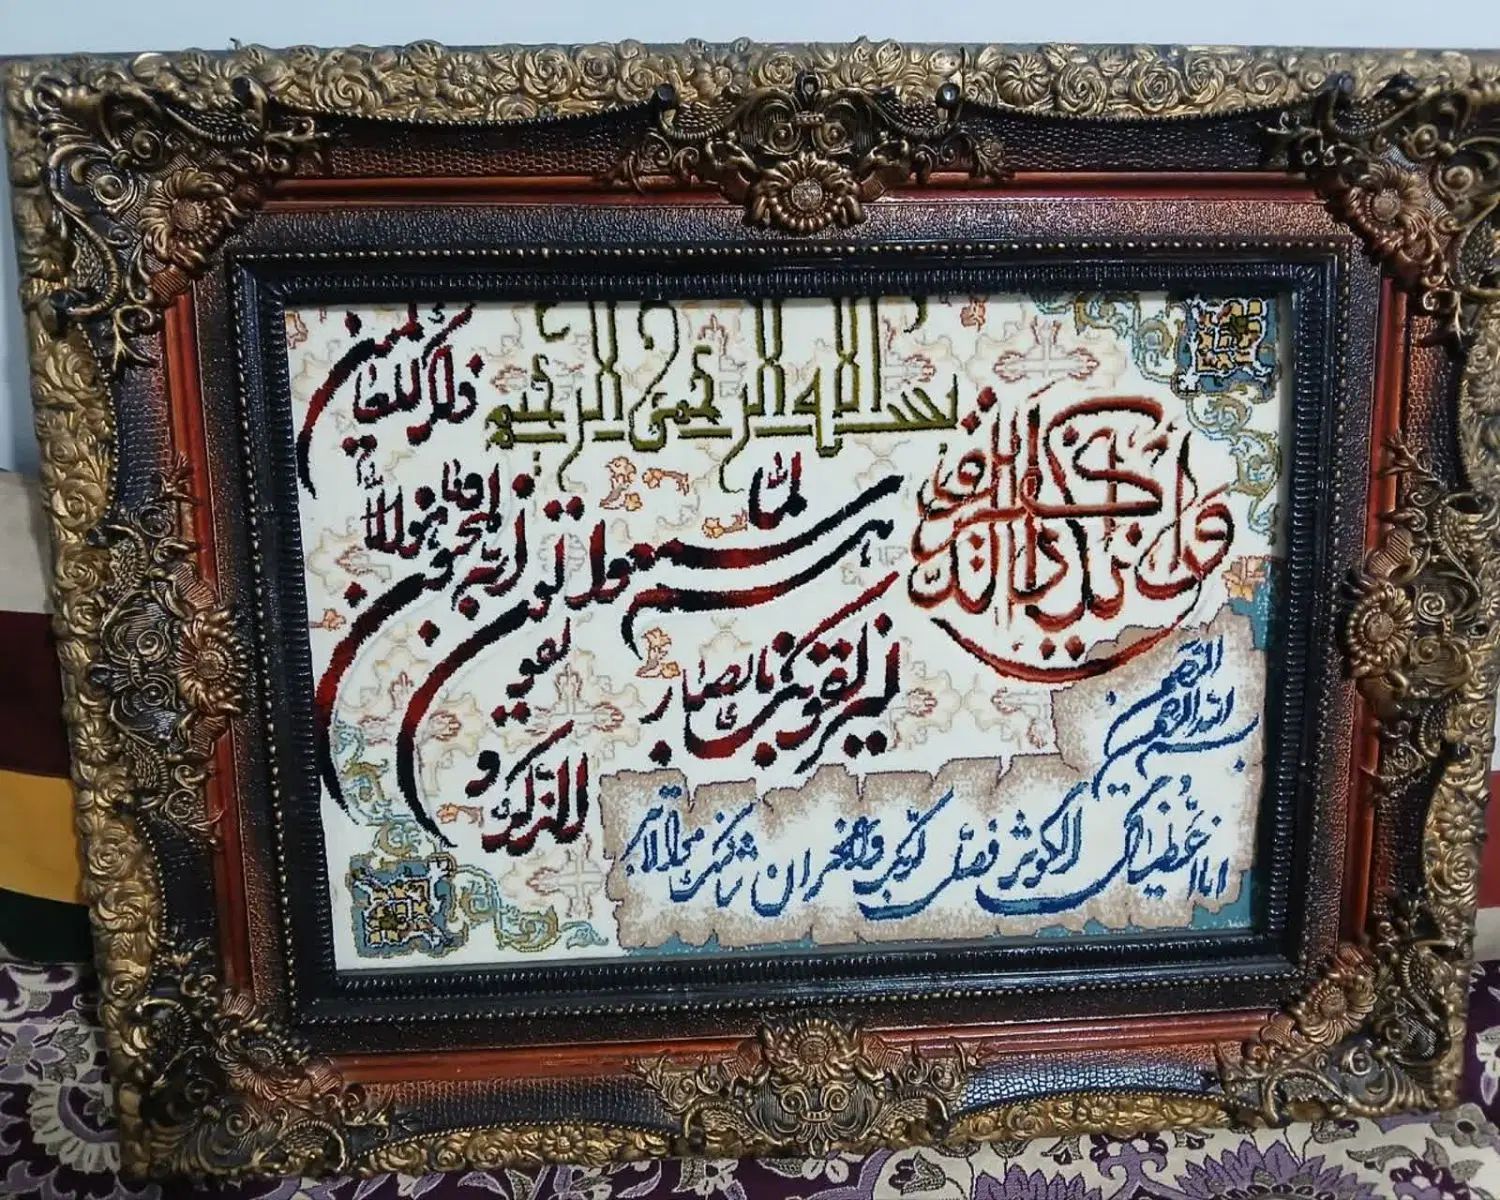 بسم الله الرحمن الرحيم
وان يكاد الذين كفروا
ليزلقونك بابصارهم لما
سمعوا الذكر و يقولون
انه لمجنون وما هو الا
ذكر للعالمين
بسم الله الرحمن الرحيم
انا اعطيناك الكوثر فصل لربك وانحر ان شانئك هو الابتر